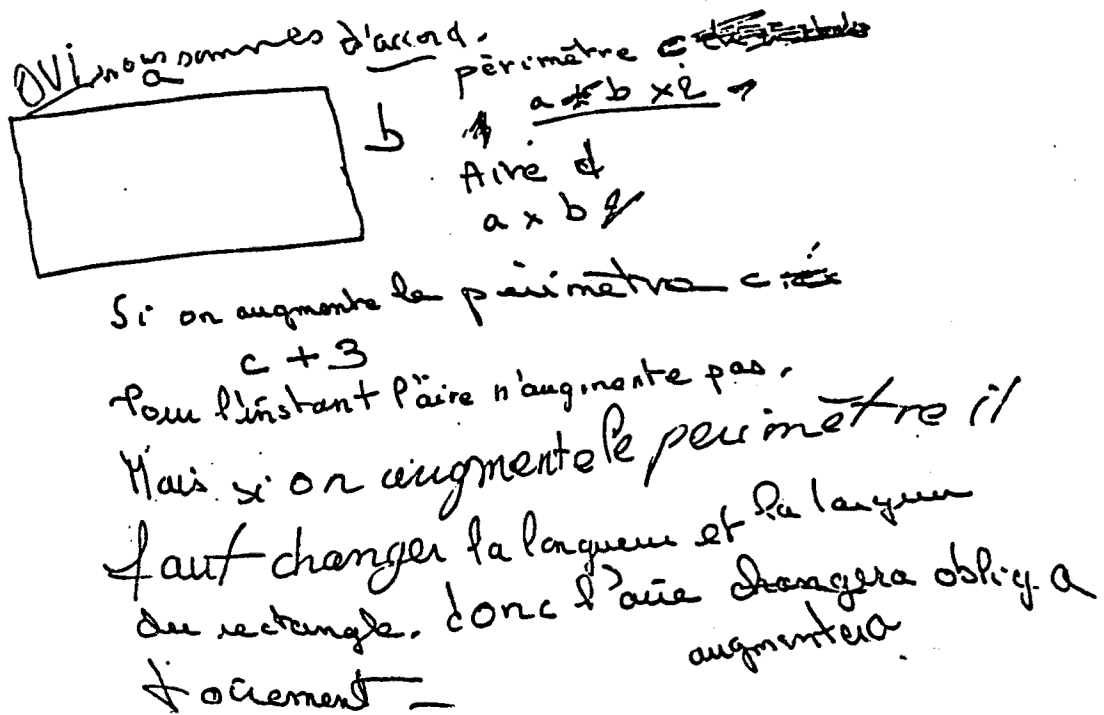 OUI nous sommes d'accord.
a
b
périmètre c
a + b x 2
Aire d
a x b
Si on augmente le périmètre c
c + 3
Pour l'instant l'aire n'augmente pas.
Mais si on augmente le périmètre il
faut changer la longueur et la largeur
du rectangle. donc l'aire changera obliga
augmentera
toirement